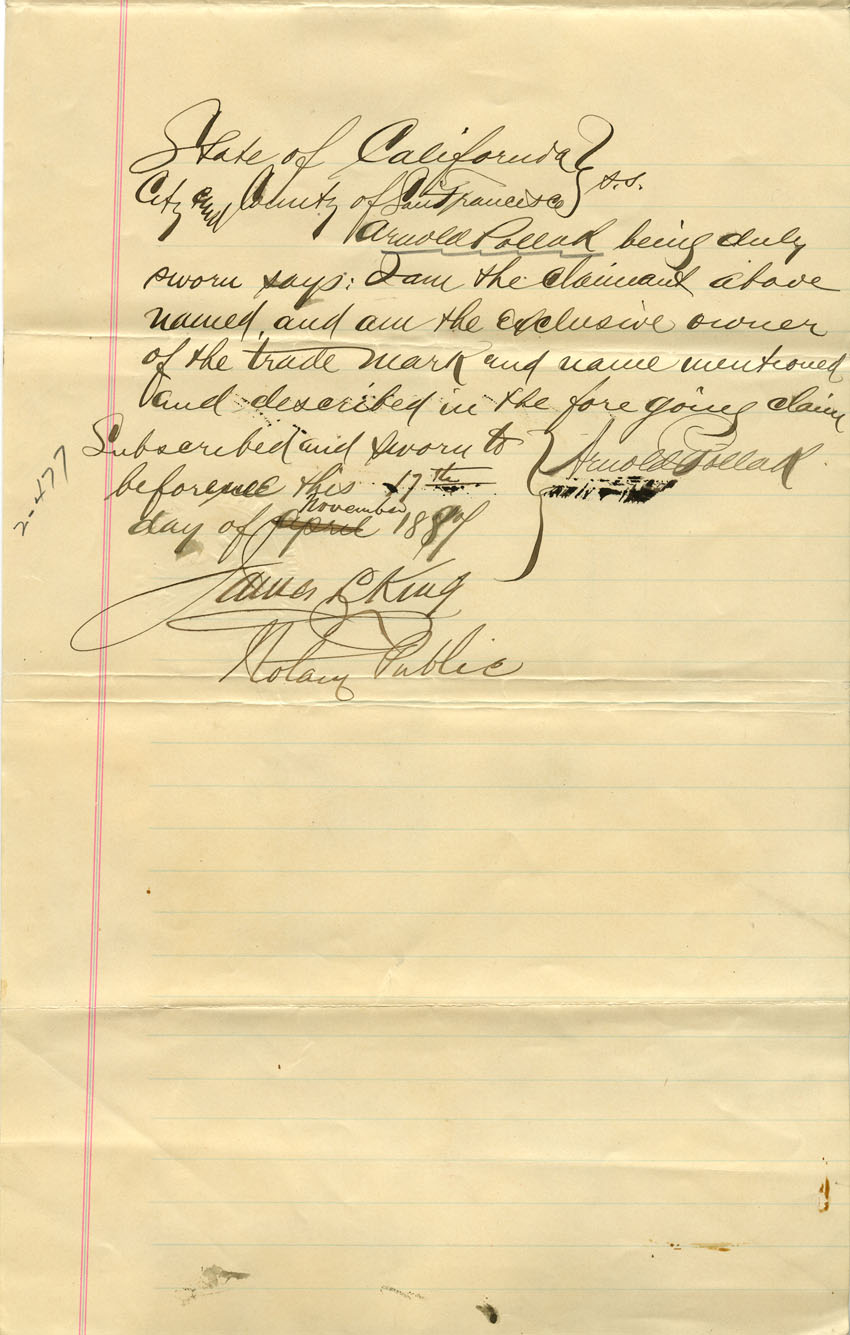 State of California } s.s.
City and County of San Francisco
Arnold Pollak being duly
sworn says: I am the claimant above
named, and am the exclusive owner
of the trade mark and name mentioned
and described in the fore going claim
Subscribed and sworn to } Arnold Pollak
before me this 17th
day of April November 1887
James L King
Notary Public
2-477